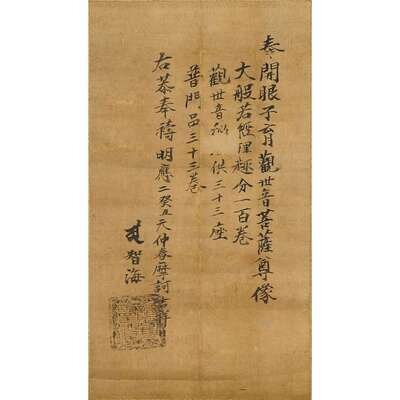 奉開眼子育觀世音菩薩尊像
大般若經理趣分一百卷
觀世音 供三十三座
普門品三十三卷
右恭奉禱 明應二癸丑天仲春摩訶
智海